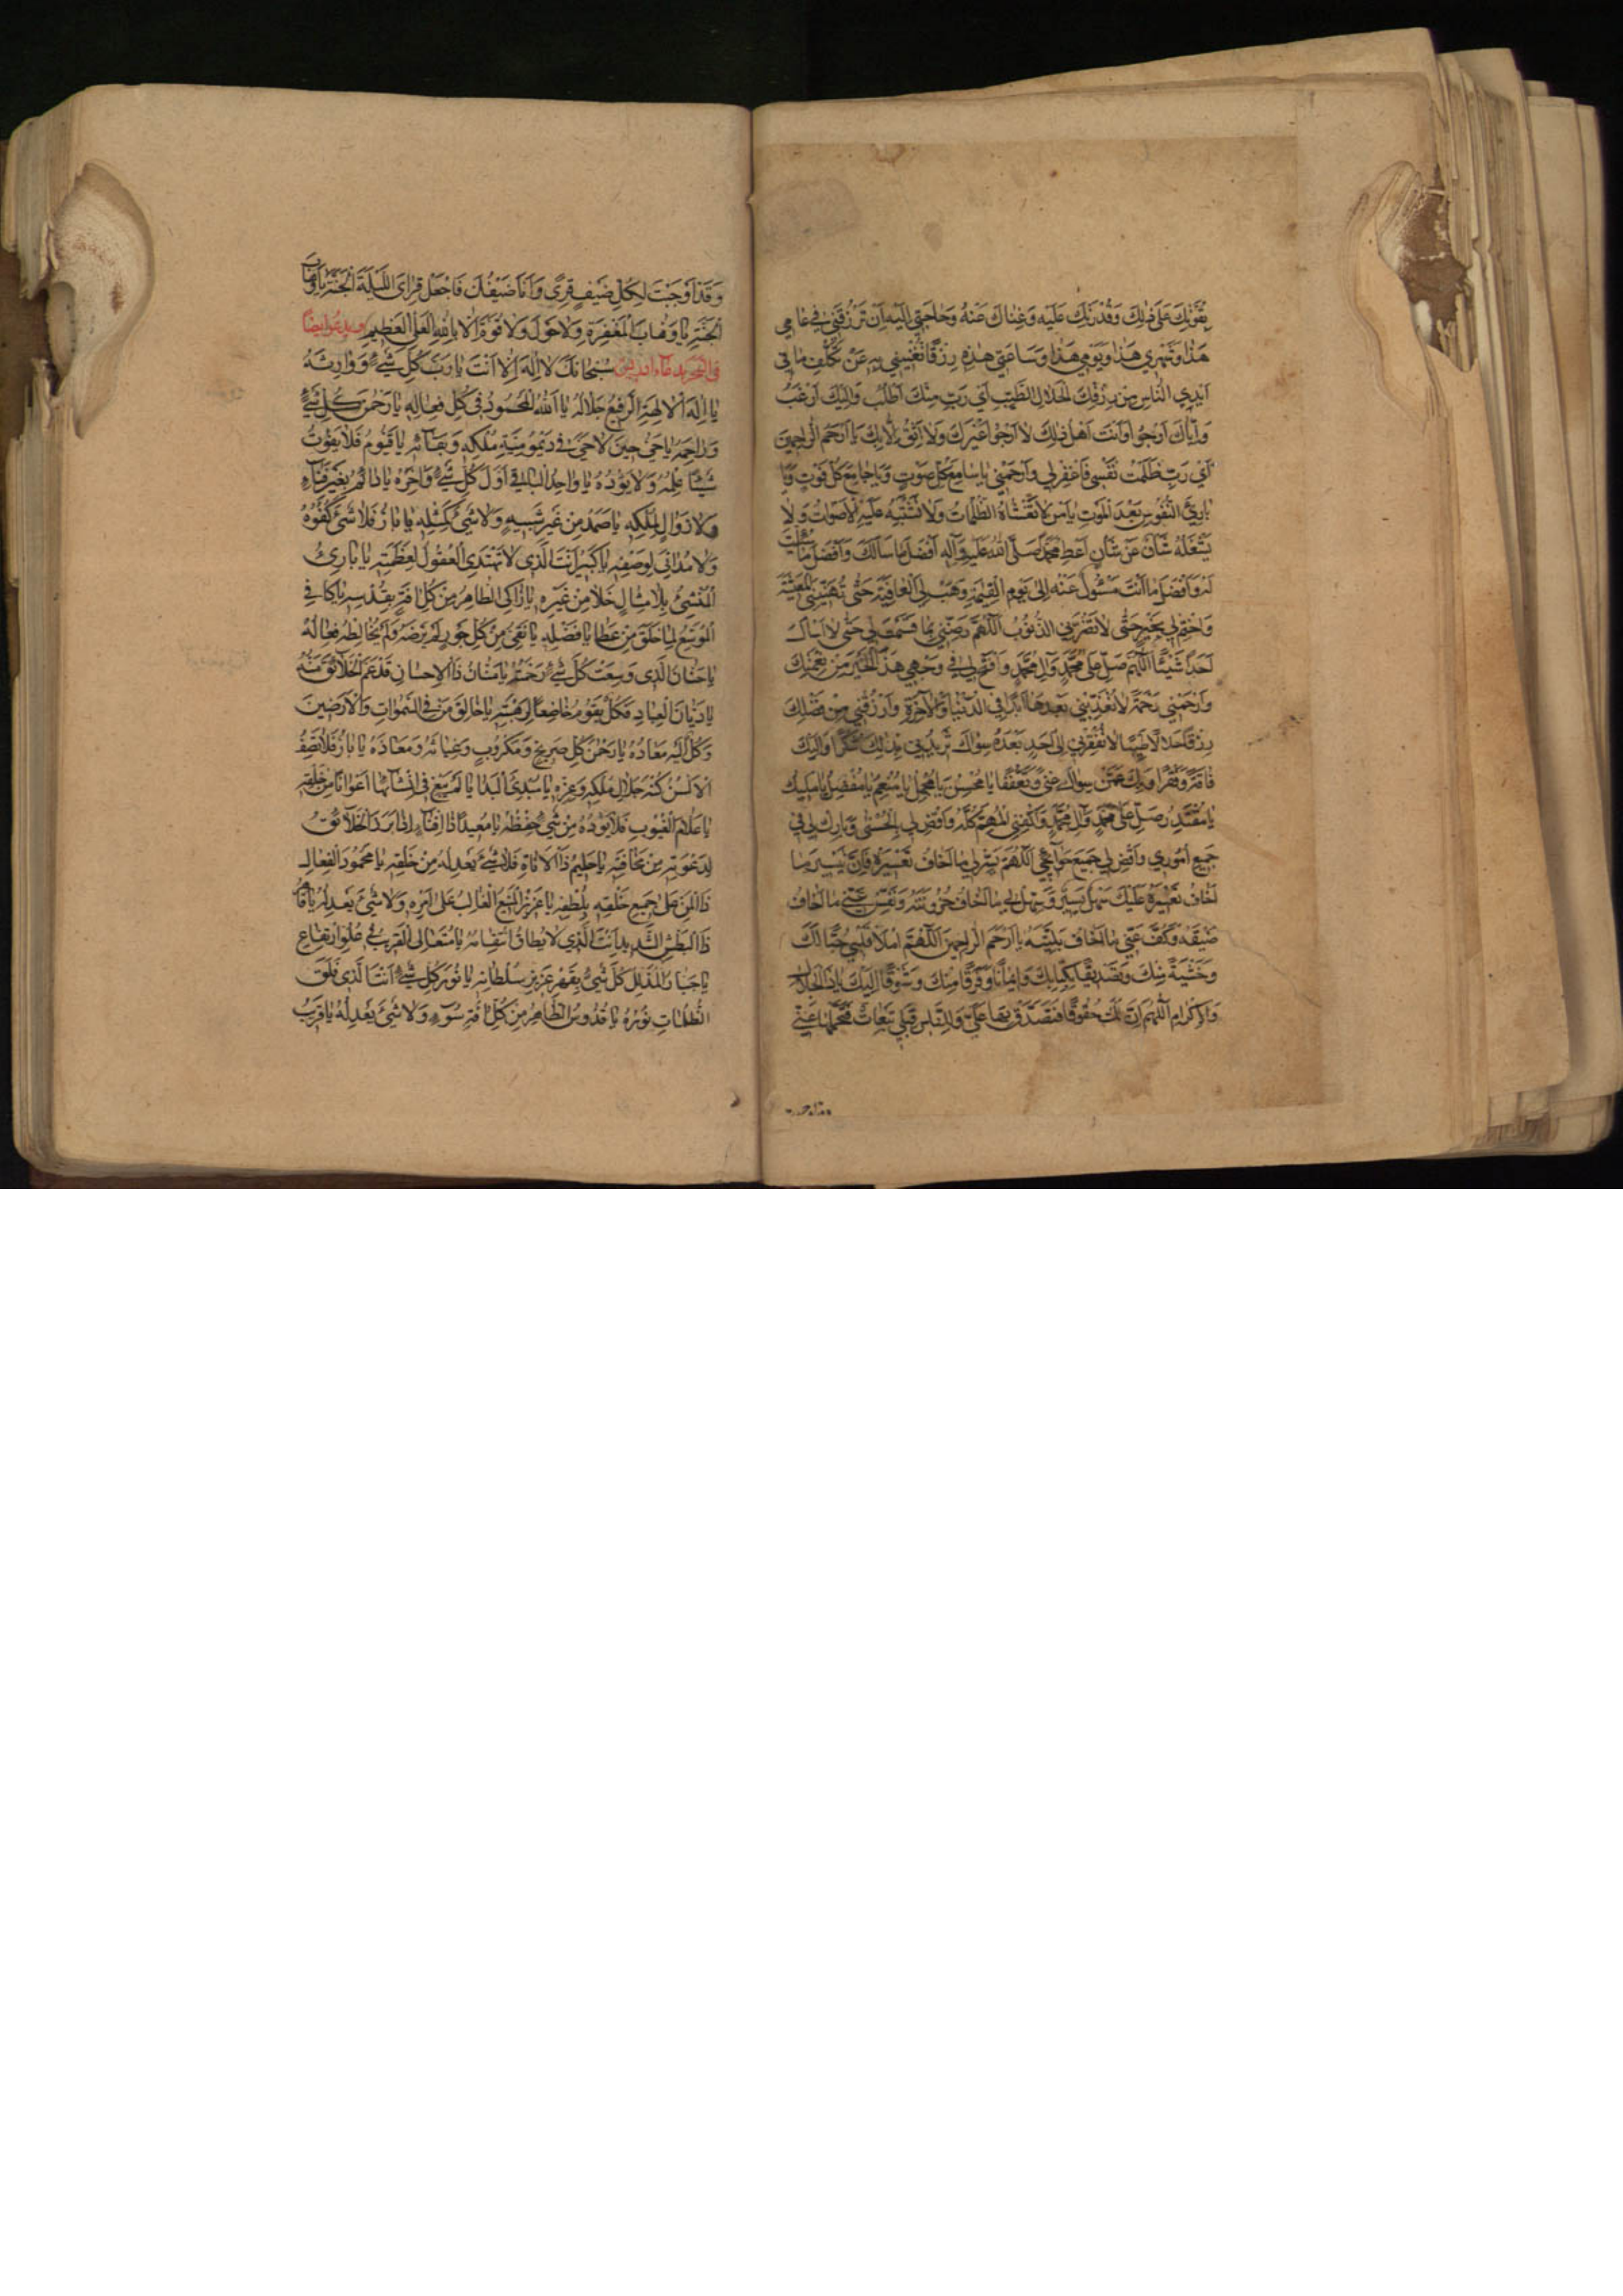 بِقُوَّتِكَ عَلىٰ ذٰلِكَ وَقُدْرَتِكَ عَلَيْهِ وَغِنٰاكَ عَنْهُ وَحٰاجَتِي إِلَيْهِ أَنْ تَرْزُقَنِي فِي عٰامِي
هٰذٰا وَشَهْرِي هٰذٰا وَيَوْمِي هٰذٰا وَسٰاعَتِي هٰذِهِ رِزْقًا تُغْنِينِي بِهِ عَنْ تَكَلُّفِ مٰا فِي
أَيْدِي النّٰاسِ مِنْ رِزْقِكَ الْحَلٰالِ الطَّيِّبِ أَيْ رَبِّ مِنْكَ أَطْلُبُ وَإِلَيْكَ أَرْغَبُ
وَإِيّٰاكَ أَرْجُوا وَأَنْتَ أَهْلُ ذٰلِكَ لٰا أَرْجُوا غَيْرَكَ وَلٰا أَثِقُ إِلّٰا بِكَ يٰا أَرْحَمَ الرّٰاحِمِينَ
أَيْ رَبِّ ظَلَمْتُ نَفْسِي فَاغْفِرْ لِي وَارْحَمْنِي يٰا سٰامِعَ كُلِّ صَوْتٍ وَيٰا جٰامِعَ كُلِّ فَوْتٍ وَيٰا
بٰارِئَ النُّفُوسِ بَعْدَ الْمَوْتِ يٰا مَنْ لٰا تَغْشٰاهُ الظُّلُمٰاتُ وَلٰا تَشْتَبِهُ عَلَيْهِ الْأَصْوٰاتُ وَلٰا
يَشْغَلُهُ شَأْنٌ عَنْ شَأْنٍ أَعْطِ مُحَمَّدًا صَلَّى اللهُ عَلَيْهِ وَآلِهِ أَفْضَلَ مٰا سَأَلَكَ وَأَفْضَلَ مٰا سُئِلْتَ
لَهُ وَأَفْضَلَ مٰا أَنْتَ مَسْئُولٌ عَنْهُ إِلىٰ يَوْمِ الْقِيٰمَةِ وَهَبْ لِيَ الْعٰافِيَةَ حَتّٰى تُهَنِّيَنِي الْمَعِيشَةَ
وَاخْتِمْ لِي بِخَيْرٍ حَتّٰى لٰا تَضُرَّنِي الذُّنُوبُ اَللّٰهُمَّ رَضِّنِي بِمٰا قَسَمْتَ لِي حَتّٰى لٰا أَسْأَلَ
أَحَدًا شَيْئًا اَللّٰهُمَّ صَلِّ عَلىٰ مُحَمَّدٍ وَآلِ مُحَمَّدٍ وَافْتَحْ لِي
وَارْحَمْنِي رَحْمَةً لٰا تُعَذِّبُنِي بَعْدَهٰا أَبَدًا فِي الدُّنْيٰا وَالْآخِرَةِ وَارْزُقْنِي مِنْ فَضْلِكَ
رِزْقًا حَلٰالًا طَيِّبًا لٰا تُفْقِرُنِي إِلىٰ أَحَدٍ بَعْدَهُ سِوٰاكَ تَزِيدُنِي بِذٰلِكَ شُكْرًا وَإِلَيْكَ
فٰاقَةً وَفَقْرًا وَبِكَ عَمَّنْ سِوٰاكَ غِنًى وَتَعَفُّفًا يٰا مُحْسِنُ يٰا مُجْمِلُ يٰا مُنْعِمُ يٰا مُفْضِلُ يٰا مَلِيكُ
يٰا مُقْتَدِرُ صَلِّ عَلىٰ مُحَمَّدٍ وَآلِ مُحَمَّدٍ وَاكْفِنِي الْمُهِمَّ كُلَّهُ وَاقْضِ لِي بِالْحُسْنىٰ وَبٰارِكْ لِي فِي
جَمِيعِ أُمُورِي وَاقْضِ لِي جَمِيعَ حَوٰائِجِي اَللّٰهُمَّ يَسِّرْ لِي مٰا أَخٰافُ تَعْسِيرَهُ فَإِنَّ تَيْسِيرَ مٰا
أَخٰافُ تَعْسِيرَهُ عَلَيْكَ سَهْلٌ يَسِيرٌ وَسَهِّلْ لِي مٰا أَخٰافُ حُزُونَتَهُ وَنَفِّسْ عَنِّي مٰا أَخٰافُ
ضِيقَهُ وَكُفَّ عَنِّي مٰا أَخٰافُ بَلِيَّتَهُ يٰا أَرْحَمَ الرّٰاحِمِينَ اَللّٰهُمَّ امْلَأْ قَلْبِي حُبًّا لَكَ
وَخَشْيَةً مِنْكَ وَتَصْدِيقًا بِكِتٰابِكَ وَإِيمٰانًا وَفَرَقًا مِنْكَ وَشَوْقًا إِلَيْكَ يٰا ذَا الْجَلٰالِ
وَالْإِكْرٰامِ اَللّٰهُمَّ إِنَّ لَكَ حُقُوقًا فَتَصَدَّقْ بِهٰا عَلَيَّ وَلِلنّٰاسِ قِبَلِي تَبِعٰاتٌ فَتَحَمَّلْهٰا عَنِّي
وَقَدْ أَوْجَبْتَ لِكُلِّ ضَيْفٍ قِرًى وَأَنَا ضَيْفُكَ فَاجْعَلْ قِرٰايَ اللَّيْلَةَ الْجَنَّةَ يٰا وَهّٰابَ
الْجَنَّةِ يٰا وَهّٰابَ الْمَغْفِرَةِ وَلٰا حَوْلَ وَلٰا قُوَّةَ إِلّٰا بِاللهِ الْعَلِيِّ الْعَظِيمِ ويدعو ايضا
في السحر بدعاء ادريس سُبْحٰانَكَ لٰا إِلٰهَ إِلّٰا أَنْتَ يٰا رَبَّ كُلِّ شَيْءٍ وَوٰارِثَهُ
يٰا إِلٰهَ الْآلِهَةِ الرَّفِيعُ جَلٰالُهُ يٰا اَللهُ الْمَحْمُودُ فِي كُلِّ فِعٰالِهِ يٰا رَحْمٰنَ كُلِّ شَيْءٍ
وَرٰاحِمَهُ يٰا حَيُّ حِينَ لٰا حَيَّ فِي دَيْمُومِيَّةِ مُلْكِهِ وَبَقٰائِهِ يٰا قَيُّومُ فَلٰا يَفُوتُ
شَيْئًا عِلْمُهُ وَلٰا يَؤُدُهُ يٰا وٰاحِدُ الْبٰاقِي أَوَّلَ كُلِّ شَيْءٍ وَآخِرَهُ يٰا دٰائِمُ بِغَيْرِ فَنٰاءٍ
وَلٰا زَوٰالٍ لِمُلْكِهِ يٰا صَمَدُ مِنْ غَيْرِ شَبِيهٍ وَلٰا شَيْءَ كَمِثْلِهِ يٰا بٰارُّ فَلٰا شَيْءَ كُفْوُهُ
وَلٰا مُدٰانِيَ لِوَصْفِهِ يٰا كَبِيرُ أَنْتَ الَّذِي لٰا تَهْتَدِي الْعُقُولُ لِعَظَمَتِهِ يٰا بٰارِئُ
الْمُنْشِئُ بِلٰا مِثٰالٍ خَلٰا مِنْ غَيْرِهِ يٰا زٰاكِي الطّٰاهِرُ مِنْ كُلِّ آفَةٍ بِقُدْسِهِ يٰا كٰافِي
الْمُوَسِّعُ لِمٰا خَلَقَ مِنْ عَطٰايٰا فَضْلِهِ يٰا نَقِيُّ مِنْ كُلِّ جَوْرٍ لَمْ يَرْضَهُ وَلَمْ يُخٰالِطْهُ فِعٰالُهُ
يٰا حَنّٰانُ الَّذِي وَسِعَتْ كُلَّ شَيْءٍ رَحْمَتُهُ يٰا مَنّٰانُ ذَا الْإِحْسٰانِ قَدْ عَمَّ الْخَلٰائِقَ مَنُّهُ
يٰا دَيّٰانَ الْعِبٰادِ فَكُلٌّ يَقُومُ خٰاضِعًا لِرَهْبَتِهِ يٰا خٰالِقَ مَنْ فِي السَّمٰوٰاتِ وَالْأَرَضِينَ
وَكُلٌّ إِلَيْهِ مَعٰادُهُ يٰا رَحْمٰنَ كُلِّ صَرِيخٍ وَمَكْرُوبٍ وَغِيٰاثَهُ وَمَعٰاذَهُ يٰا بٰارُّ فَلٰا تَصِفُ
الْأَلْسُنُ كُنْهَ جَلٰالِ مُلْكِهِ وَعِزِّهِ يٰا مُبْدِئَ الْبَدٰايٰا لَمْ يَبْغِ فِي إِنْشٰائِهٰا أَعْوٰانًا مِنْ خَلْقِهِ
يٰا عَلّٰامَ الْغُيُوبِ فَلٰا يَؤُدُهُ مِنْ شَيْءٍ حِفْظُهُ يٰا مُعِيدًا مٰا أَفْنٰاهُ إِذٰا بَرَزَ الْخَلٰائِقُ
لِدَعْوَتِهِ مِنْ مَخٰافَتِهِ يٰا حَلِيمُ ذَا الْأَنٰاةِ فَلٰا شَيْءَ يَعْدِلُهُ مِنْ خَلْقِهِ يٰا مَحْمُودَ الْفِعٰالِ
ذَا الْمَنِّ عَلىٰ جَمِيعِ خَلْقِهِ بِلُطْفِهِ يٰا عَزِيزُ الْمَنِيعُ الْغٰالِبُ عَلىٰ أَمْرِهِ وَلٰا شَيْءَ يَعْدِلُهُ يٰا قٰاهِرُ
ذَا الْبَطْشِ الشَّدِيدِ أَنْتَ الَّذِي لٰا يُطٰاقُ انْتِقٰامُهُ يٰا مُتَعٰالِي الْقَرِيبُ فِي عُلُوِّ ارْتِفٰاعِ
يٰا جَبّٰارُ الْمُذَلِّلُ كُلَّ شَيْءٍ بِقَهْرِ عَزِيزِ سُلْطٰانِهِ يٰا نُورَ كُلِّ شَيْءٍ أَنْتَ الَّذِي فَلَقَ
الظُّلُمٰاتِ نُورُهُ يٰا قُدُّوسُ الطّٰاهِرُ مِنْ كُلِّ آفَةٍ سُوءٍ وَلٰا شَيْءَ يَعْدِلُهُ يٰا قَرِيبُ